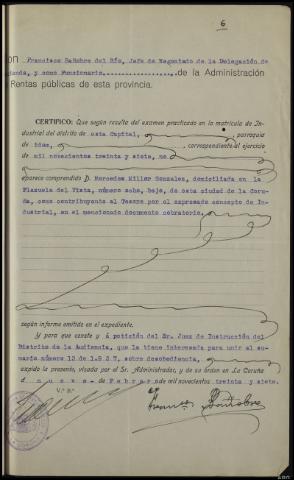 6
on Francisco Rañobre del Río, Jefe de Negociado de la Delegación de
ienda, y como Funcionario de la Administración
Rentas públicas de esta provincia.
CERTIFICO: Que según resulta del examen practicado en la matrícula de In-
dustrial del distrito de esta Capital, parroquia
de ídem, correspondiente al ejercicio
de mil novecientos treinta y siete, no
aparece comprendido D. Mercedes Miller Gonzalez, domiciliada en la
Plazuela del Vista, número ocho, bajo, de esta ciudad de la Coru-
ña, como contribuyente al Tesoro por el expresado concepto de In-
dustrial, en el mencionado documento cobratorio,
según informe emitido en el expediente.
Y para que conste y á petición del Sr. Juez de Instrucción del
Distrito de la Audiencia, que la tiene interesada para unir al su-
mario número 12 de 1.937, sobre desobediencia,
expido la presente, visada por el Sr. Administrador, y de su orden en La Coruña
á nueve de Febrero de mil novecientos treinta y siete.
V.º B.º